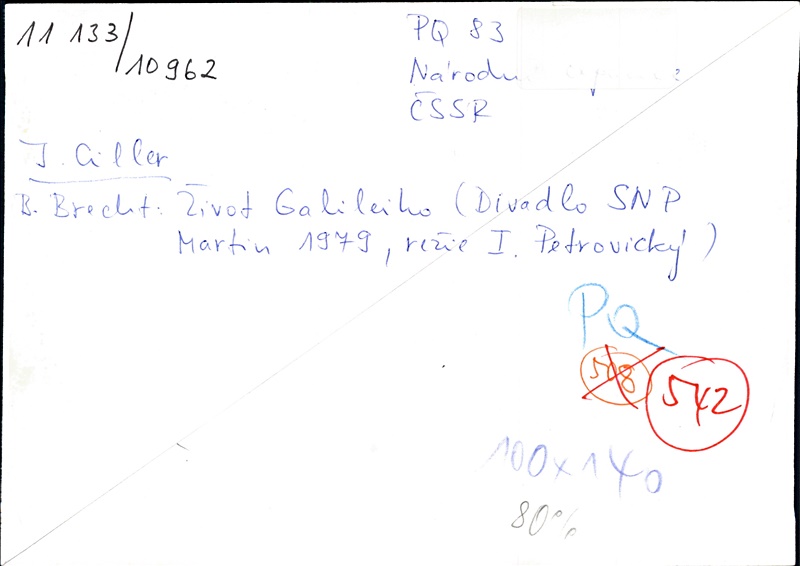 11 133/10962
PQ 83
Národní
ČSSR
J. Ciller
B. Brecht: Život Galileiho (Divadlo SNP
Martin 1979, režie I. Petrovický)
PQ
508
542
100x140
80%